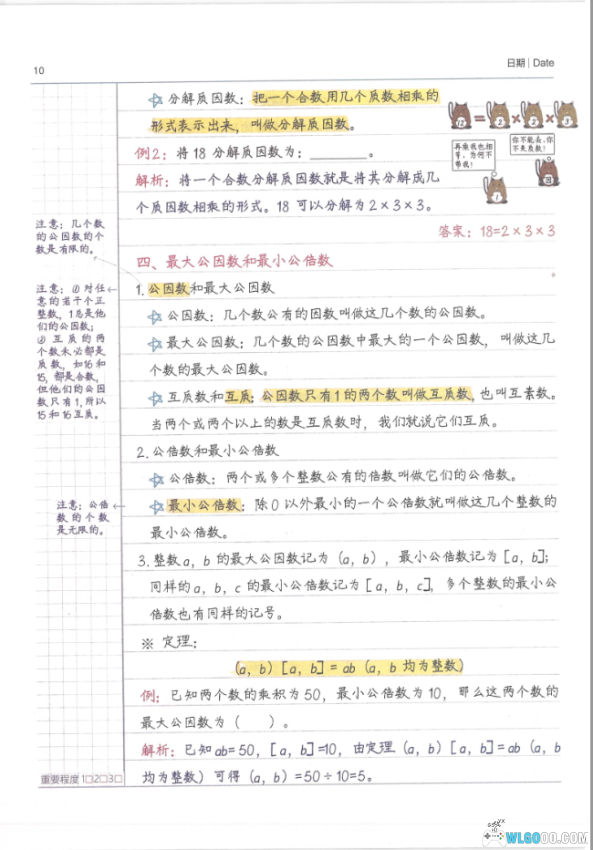 10
日期 | Date
☆ 分解质因数：把一个合数用几个质数相乘的
形式表示出来，叫做分解质因数。
18 = 2 × 3 × 3
再乘我也相等，为何不带我！
你不能去，你不是质数！
1
例2：将 18 分解质因数为：________。
解析：将一个合数分解质因数就是将其分解成几
个质因数相乘的形式。18 可以分解为 2×3×3。
答案：18=2×3×3
注意：几个数
的公因数的个
数是有限的。
四、最大公因数和最小公倍数
1. 公因数和最大公因数
☆ 公因数：几个数公有的因数叫做这几个数的公因数。
☆ 最大公因数：几个数的公因数中最大的一个公因数，叫做这几
个数的最大公因数。
☆ 互质数和互质：公因数只有1的两个数叫做互质数，也叫互素数。
当两个或两个以上的数是互质数时，我们就说它们互质。
注意：① 对任
意的若干个正
整数，1总是他
们的公因数；
② 互质的两
个数未必都是
质数，如16和
15，都是合数，
但他们的公因
数只有1，所以
15和16互质。
2. 公倍数和最小公倍数
☆ 公倍数：两个或多个整数公有的倍数叫做它们的公倍数。
☆ 最小公倍数：除0以外最小的一个公倍数就叫做这几个整数的
最小公倍数。
注意：公倍
数的个数
是无限的。
3. 整数a，b 的最大公因数记为（a，b），最小公倍数记为［a，b］；
同样的a，b，c 的最小公倍数记为［a，b，c］，多个整数的最小公
倍数也有同样的记号。
※ 定理：
（a，b）［a，b］= ab（a，b 均为整数）
例：已知两个数的乘积为50，最小公倍数为10，那么这两个数的
最大公因数为（ ）。
解析：已知ab=50，［a，b］=10，由定理（a，b）［a，b］=ab（a，b
均为整数）可得（a，b）=50÷10=5。
重要程度 1□2□3□
WLGOOO.COM